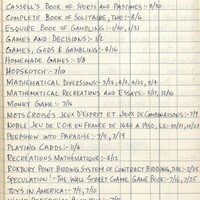 CASSELL'S BOOK OF SPORTS AND PASTIMES:- 8/10
COMPLETE BOOK OF SOLITAIRE, THE:- 8/6
ESQUIRE BOOK OF GAMBLING:- 1/10, 1/31
GAMES AND DECISIONS:- 5/2
GAMES, GODS & GAMBLING:- 4/16
HOMEMADE GAMES:- 7/8
HOPSKOTCH:- 7/10
MATHEMATICAL DIVERSIONS:- 3/28, 4/2, 4/25, 5/4
MATHEMATICAL RECREATIONS AND ESSAYS:- 5/17, 12/16
MONEY GAME:- 7/16
MOTS CROISÉS JEUX D'ESPRIT ET JEUX DE COMBINAISONS:- 7/9
NOBLE JEU DE L'OIE EN FRANCE DE 1640 A 1950, LE:-
PEEPSHOW INTO PARADISE:- 7/9, 7/19
PLAYING CARDS:- 11/4
RECREATIONS MATHEMATIQUE:- 4/12
ROXBURY POINT BIDDING SYSTEM OF CONTRACT BIDDING, THE:- 2/25
SPECULATION! - THE WALL STREET GAME GAME BOOK:- 7/16, 7/25
TOYS IN AMERICA:- 7/9, 7/10